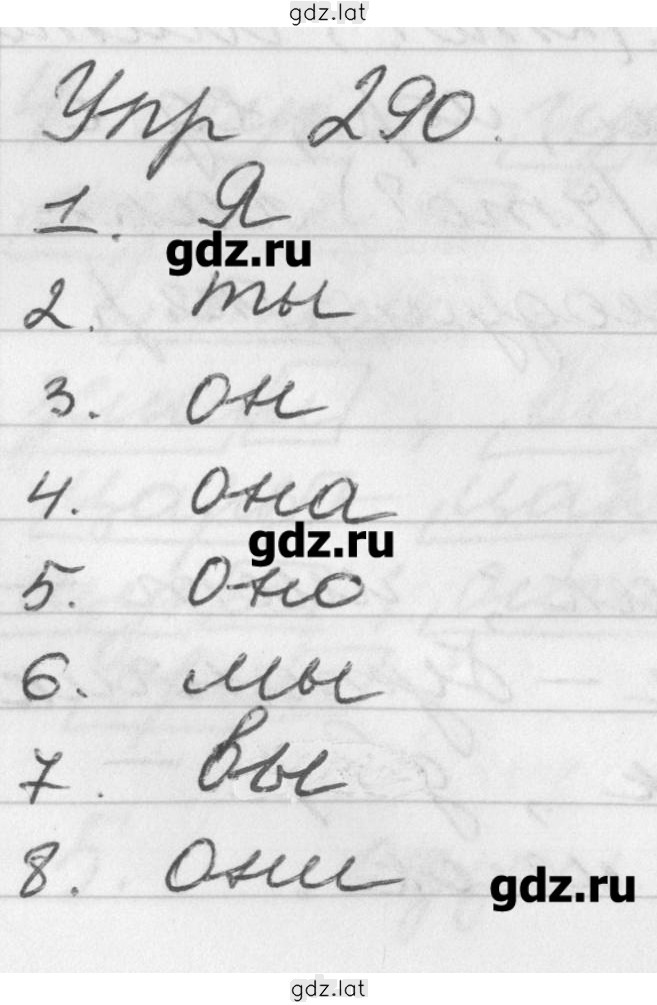 gdz.lat
Упр 290.
1. Я
gdz.ru
2. ты
3. он
4. она
gdz.ru
5. оно
6. мы
7. Вы
8. они
gdz.ru
gdz.lat